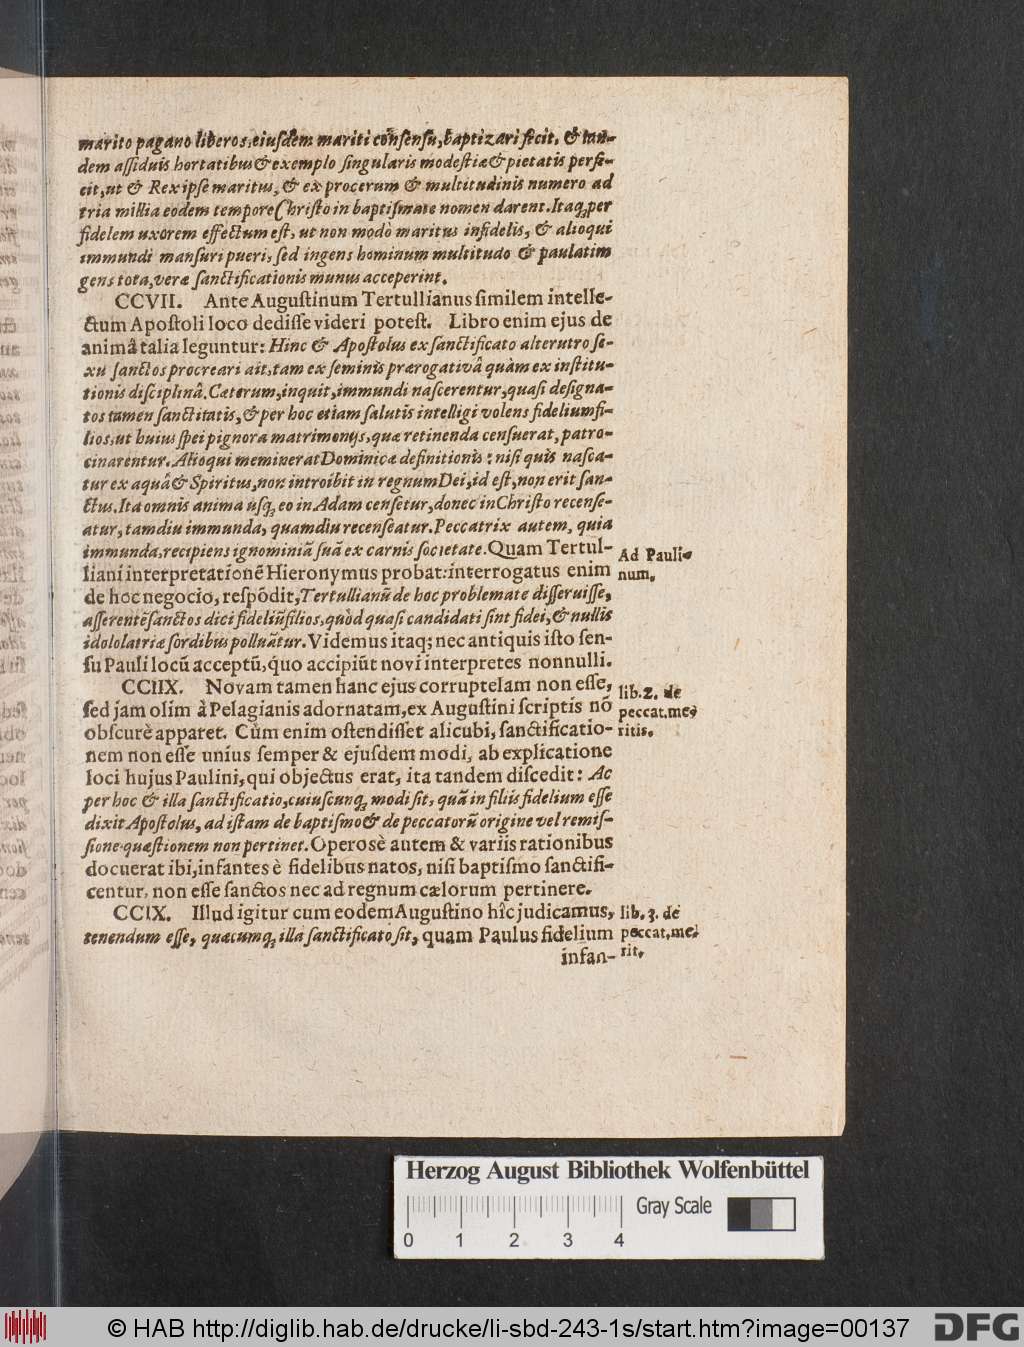 marito pagano liberos, eiusdem mariti cōnsensu, baptizari fecit, & tan-
dem aſsiduis hortatibus & exemplo ſingularis modeſtiæ & pietatis perfe-
cit, ut & Rex ipſe maritus, & ex procerum & multitudinis numero ad
tria millia eodem tempore Chriſto in baptiſmate nomen darent. Itaq; per
fidelem uxorem effectum eſt, ut non modò maritus infidelis, & alioqui
immundi manſuri pueri, ſed ingens hominum multitudo & paulatim
gens tota, veræ ſanctificationis munus acceperint.
CCVII. Ante Auguſtinum Tertullianus ſimilem intelle-
ctum Apoſtoli loco dediſſe videri poteſt. Libro enim ejus de
animâ talia leguntur: Hinc & Apoſtolus ex ſanctificato alterutro ſe-
xu ſanctos procreari ait, tam ex ſeminis prærogativâ quàm ex inſtitu-
tionis diſciplinâ. Cæterum, inquit, immundi naſcerentur, quaſi deſigna-
tos tamen ſanctitatis, & per hoc etiam ſalutis intelligi volens fidelium fi-
lios, ut huius ſpei pignora matrimonijs, quæ retinenda cenſuerat, patro-
cinarentur. Alioqui meminerat Dominicæ definitionis: niſi quis naſca-
tur ex aquâ & Spiritus, non introibit in regnum Dei, id eſt, non erit ſan-
ctus. Ita omnis anima uſq; eo in Adam cenſetur, donec in Chriſto recenſe-
atur, tamdiu immunda, quamdiu recenſeatur. Peccatrix autem, quia
immunda, recipiens ignominiā ſuā ex carnis ſocietate. Quam Tertul-
liani interpretationē Hieronymus probat: interrogatus enim
Ad Pauli-
num.
de hoc negocio, reſpōdit, Tertullianū de hoc problemate diſſeruiſſe,
aſſerentē ſanctos dici fideliū filios, quòd quaſi candidati ſint fidei, & nullis
idololatriæ ſordibus polluātur. Videmus itaq; nec antiquis iſto ſen-
ſu Pauli locū acceptū, quo accipiūt novi interpretes nonnulli.
CCIIX. Novam tamen hanc ejus corruptelam non eſſe,
ſed jam olim à Pelagianis adornatam, ex Auguſtini ſcriptis nō
obſcurè apparet. Cùm enim oſtendiſſet alicubi, ſanctificatio-
lib. 2. de
peccat. me-
ritis.
nem non eſſe unius ſemper & ejuſdem modi, ab explicatione
loci hujus Paulini, qui objectus erat, ita tandem diſcedit: Ac
per hoc & illa ſanctificatio, cuiuſcunq; modi ſit, quā in filiis fidelium eſſe
dixit Apoſtolus, ad iſtam de baptiſmo & de peccatorū origine vel remiſ-
ſione quæſtionem non pertinet. Operosè autem & variis rationibus
docuerat ibi, infantes è fidelibus natos, niſi baptiſmo ſanctifi-
centur, non eſſe ſanctos nec ad regnum cælorum pertinere.
CCIX. Illud igitur cum eodem Auguſtino hîc judicamus,
tenendum eſſe, quæcumq; illa ſanctificato ſit, quam Paulus fidelium
lib. 3. de
peccat. me-
rit.
infan-
Herzog August Bibliothek Wolfenbüttel
0 1 2 3 4
Gray Scale
© HAB http://diglib.hab.de/drucke/li-sbd-243-1s/start.htm?image=00137
DFG